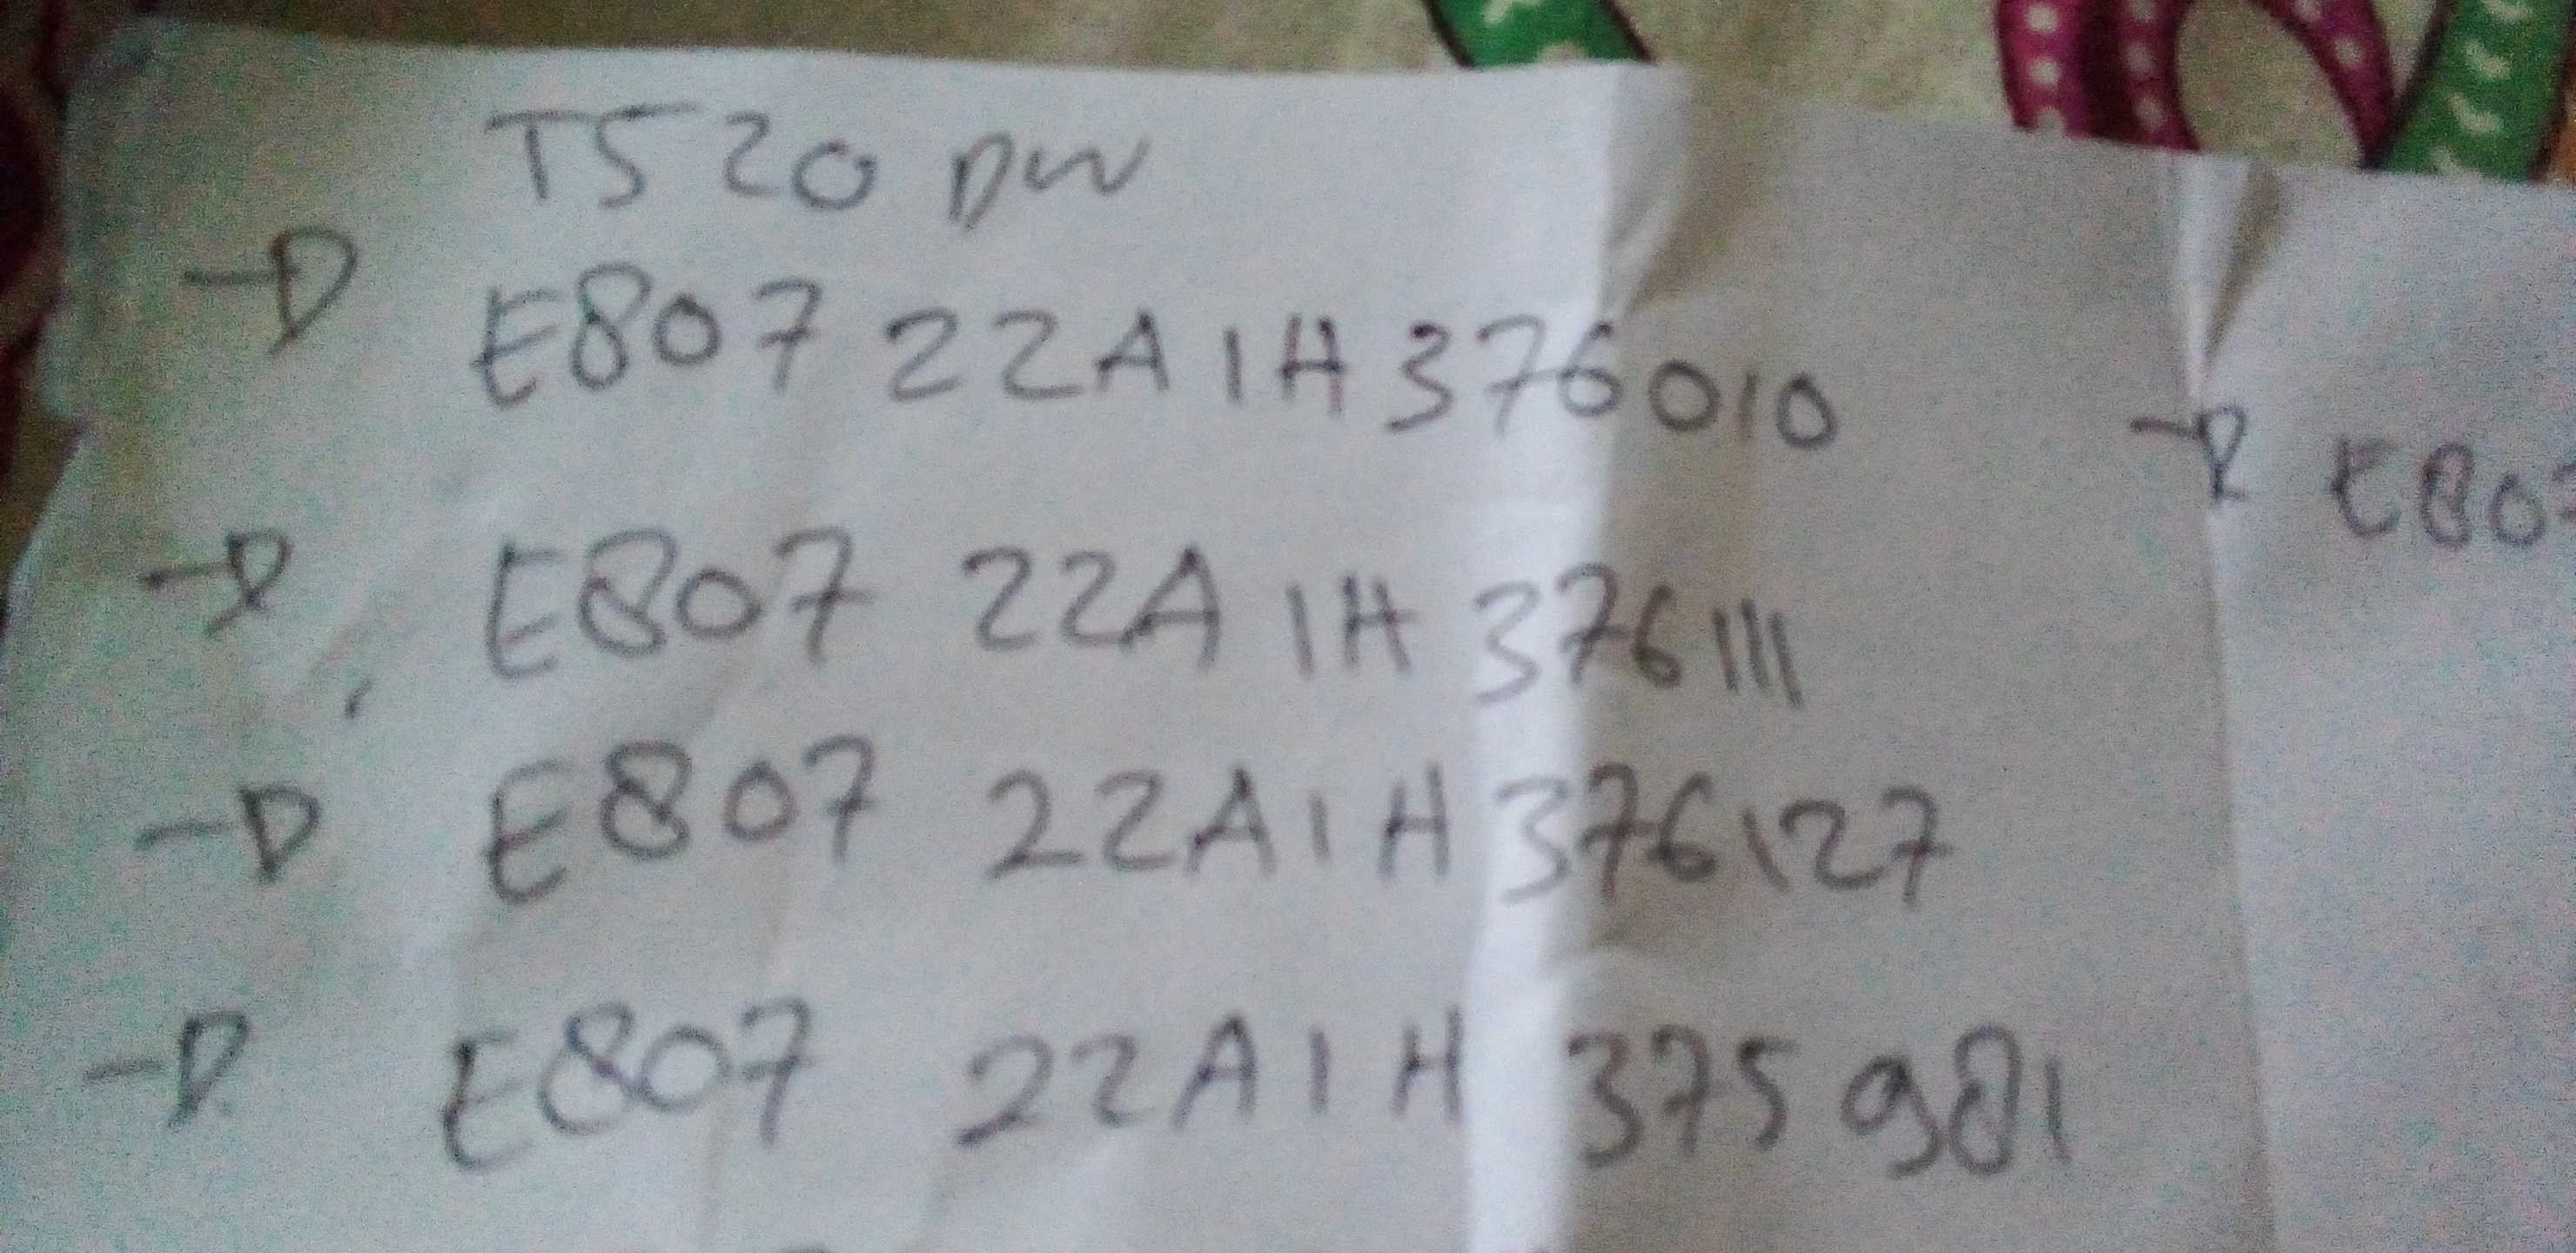 T520 DW
→ E807 22A1H376010
→ E807 22A1H376111
→ E807 22A1H376127
→ E807 22A1H375981
→ E807